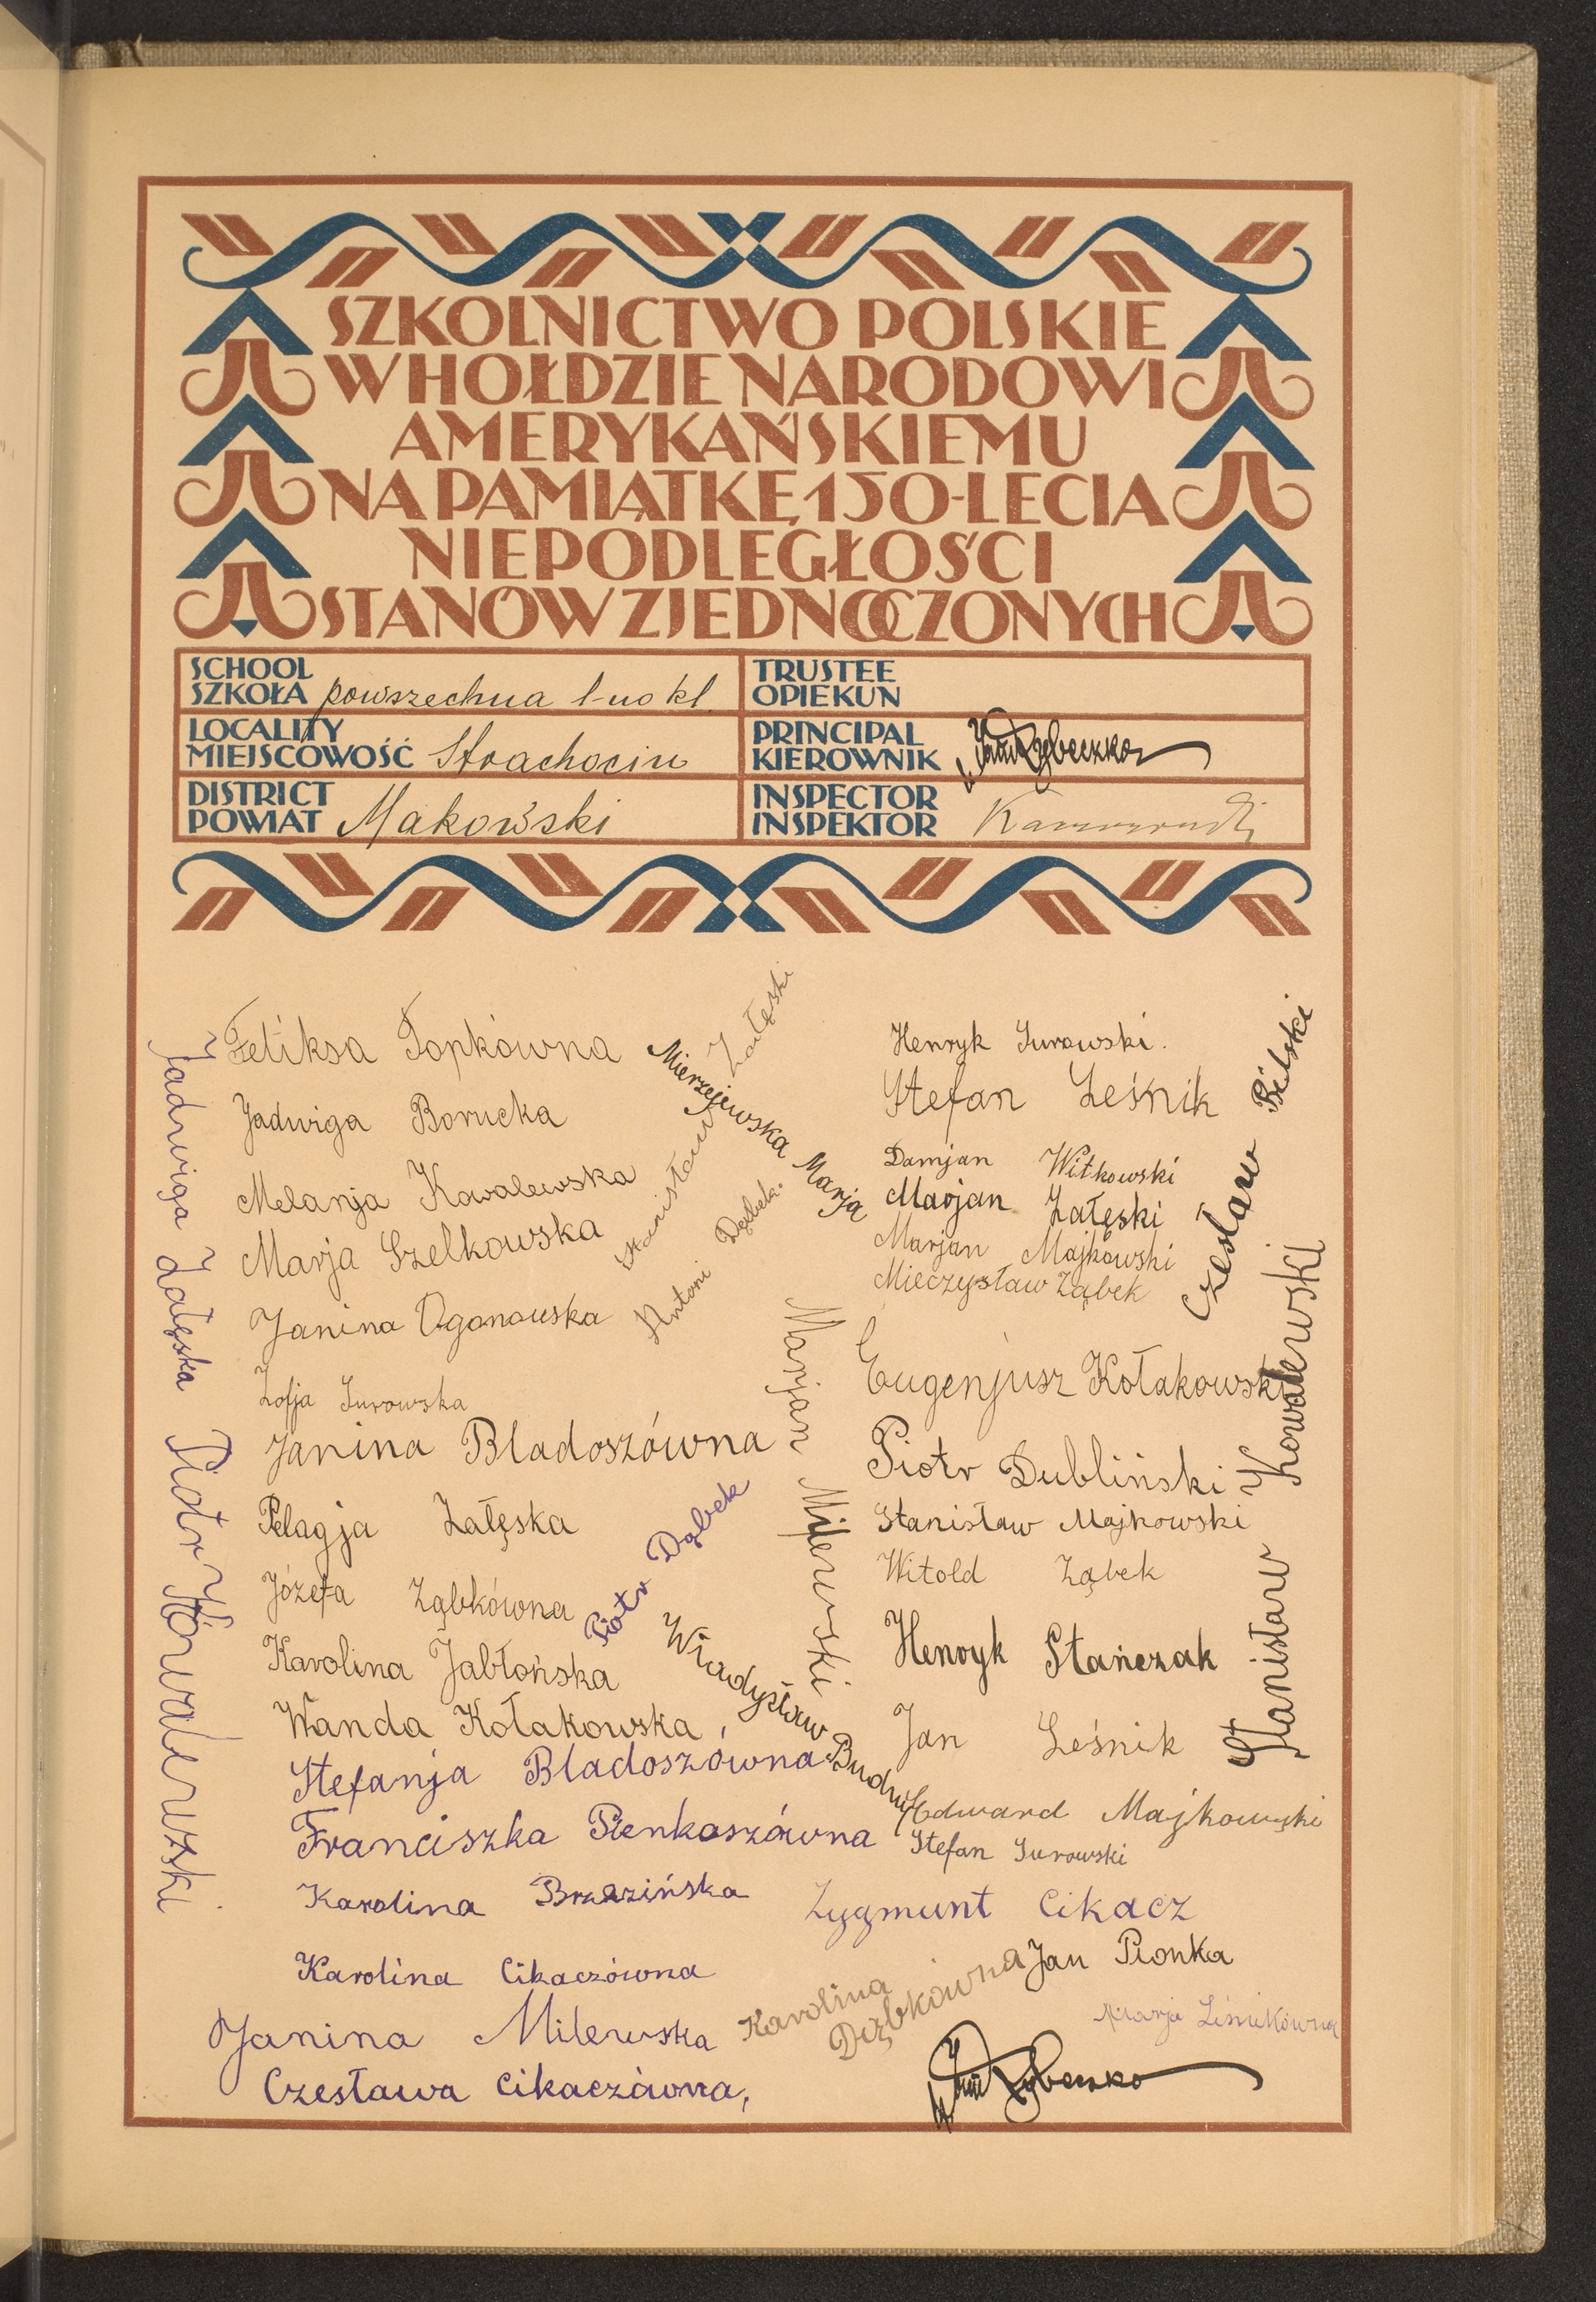 SZKOLNICTWO POLSKIE
W HOŁDZIE NARODOWI
AMERYKAŃSKIEMU
NA PAMIĄTKĘ 150-LECIA
NIEPODLEGŁOŚCI
STANÓW ZJEDNOCZONYCH
SCHOOL
SZKOŁA powszechna 1-no kl.
TRUSTEE
OPIEKUN
LOCALITY
MIEJSCOWOŚĆ Strachocin
PRINCIPAL
KIEROWNIK
DISTRICT
POWIAT Makowski
INSPECTOR
INSPEKTOR
Feliksa Topkówna
Jadwiga Borucka
Melanja Kowalewska
Marja Szelkowska
Janina Ogonowska
Zofja Surowska
Janina Bladoszówna
Pelagja Załęska
Józefa Ząbkówna
Karolina Jabłońska
Wanda Kołakowska,
Stefanja Bladoszówna
Franciszka Pienkoszówna
Karolina Brzezińska
Karolina Cikaczówna
Janina Milewska
Czesława Cikaczówna,
Jadwiga Załęska
Piotr Kowalewski.
Stanisław Załęski
Mierzejewska Marja
Antoni Dąbek.
Marjan Milewski
Piotr Dąbek
Władysław
Henryk Surowski.
Stefan Leśnik
Damjan Witkowski
Marjan Załęski
Marjan Majkowski
Mieczysław Ząbek
Eugenjusz Kołakowski
Piotr Dubliński
Stanisław Majkowski
Witold Ząbek
Henryk Stańczak
Jan Leśnik
Edward Majkowski
Stefan Surowski
Zygmunt Cikacz
Jan Pionka
Karolina
Dąbkówna
Marja Leśnikówna
Czesław Bilski
Stanisław Kowalewski